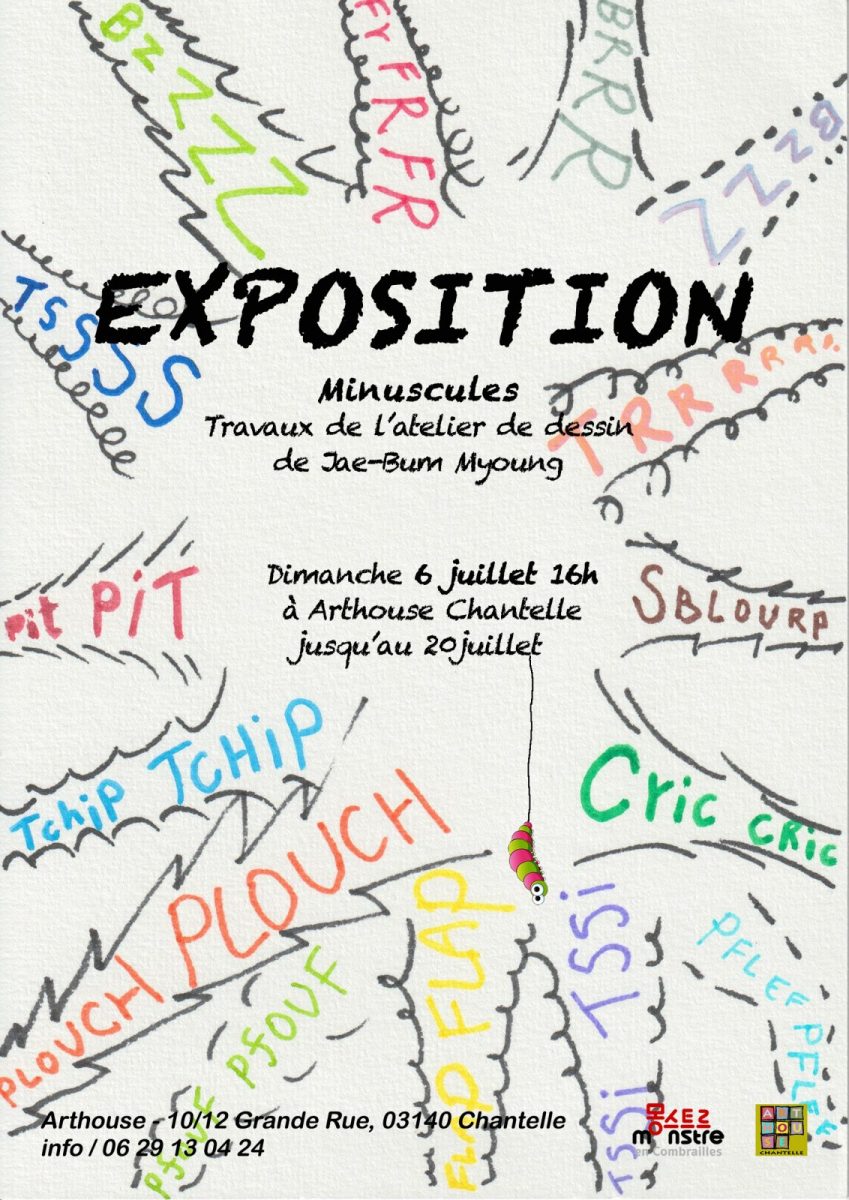 BZZZZZ
FYFRFR
BRRRR
BZZZZ
TSSSSS
EXPOSITION
Minuscules
Travaux de l'atelier de dessin
de Jae-Bum Myoung
TRRRRRR
Dimanche 6 juillet 16h
à Arthouse Chantelle
jusqu'au 20 juillet
Pit PiT
SBLOURP
Tchip TCHiP
Cric CRiC
PLOUCH PLOUCH
PFOUF PFOUF
FLAP FLAP
TSSi TSSi
PFLEF PFLEF
Arthouse - 10/12 Grande Rue, 03140 Chantelle
info / 06 29 13 04 24
몽스트르
monstre
en Combrailles
CHANTELLE